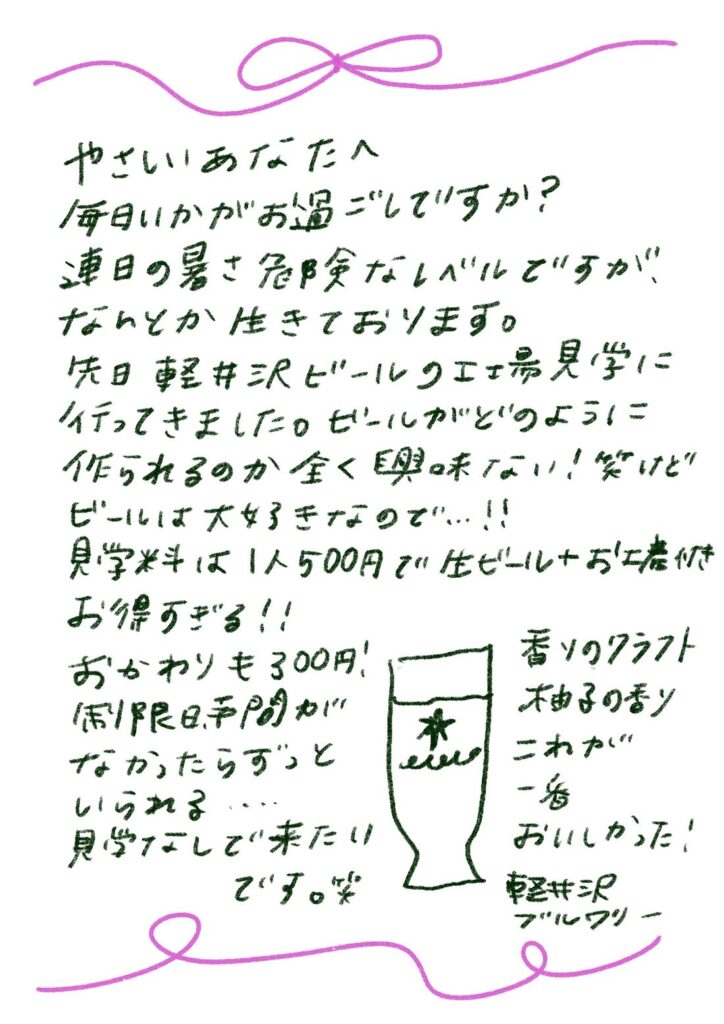 やさしいあなたへ
毎日いかがお過ごしですか？
連日の暑さ危険なレベルですが、
なんとか生きております。
先日軽井沢ビールの工場見学に
行ってきました。ビールがどのように
作られるのか全く興味ない！笑けど
ビールは大好きなので…!!
見学料は1人500円で生ビール+お土産付き
お得すぎる!!
おかわりも300円！
制限時間が
なかったらずっと
いられる‥‥
見学なしで来たい
です。笑
香りのクラフト
柚子の香り
これが
一番
おいしかった！
軽井沢
ブルワリー